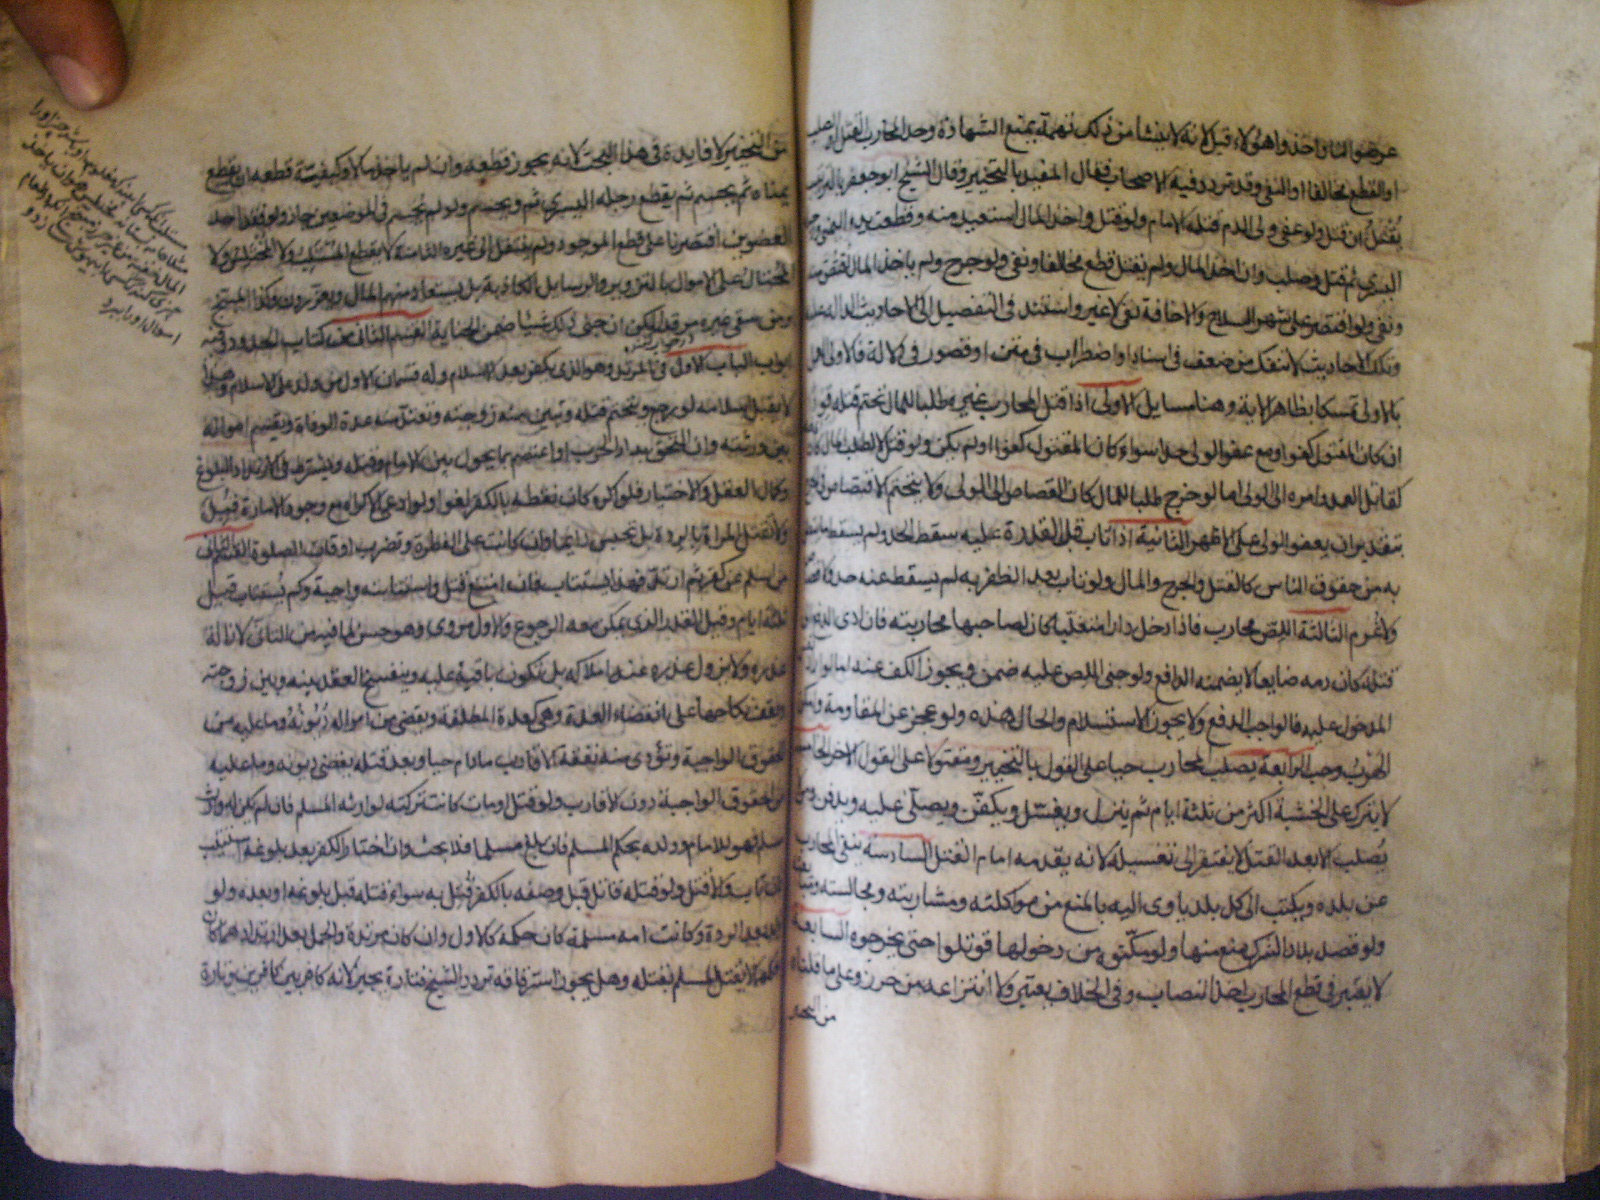 عرضوا لنا واخذوا هؤلاء قبل لانه لا ينشأ من ذلك تهمة يمنع الشهادة وحد المحارب القتل او الصلب
او القطع مخالفا او النفى وقد تردد فيه الاصحاب فقال المفيد بالتخيير وقال الشيخ ابو جعفر بالترتيب
يُقتل ان قتل ولو عفى ولى الدم قتله الامام ولو قتل واخذ المال استعيد منه وقطعت يده اليمنى ورجله
اليسرى ثم قتل وصلب وان اخذ المال ولم يقتل قطع مخالفا ونفى ولو جرح ولم ياخذ المال اقتص منه
ونفى ولو اقتصر على شهر السلاح والاخافة نفى لا غير واستند فى التفصيل الى الاحاديث الدالة عليه
وتلك الاحاديث لا تنفك من ضعف فى اسناد او اضطراب فى متن او قصور فى دلالة فالاولى العمل
بالاولى تمسكا بظاهر الاية وهنا مسايل الاولى اذا قتل المحارب غيره طلبا للمال تحتم قتله قودا
ان كان المقتول كفوا ومع عفو الولى حدا سواء كان المقتول كفوا او لم يكن ولو قتل لا لطلب المال كان
كقاتل العمد وامره الى الولى اما لو جرح طلبا للمال كان القصاص الى الولى ولا يتحتم الاقتصاص فى الجرح
بتقدير ان يعفو الولى على الاظهر الثانية اذا تاب قبل القدرة عليه سقط الحد ولم يسقط ما يتعلق
به من حقوق الناس كالقتل والجرح والمال ولو تاب بعد الظفر به لم يسقط عنه حد ولا قصاص
ولا غرم الثالثة اللص محارب فاذا دخل دارا متغلبا كان لصاحبها محاربته فان ادى الدفع
قتله كان دمه ضايعا لا يضمنه الدافع ولو جنى اللص عليه ضمن ويجوز الكف عنه اما لو اراد نفس
المدخول عليه فالواجب الدفع ولا يجوز الاستسلام والحال هذه ولو عجز عن المقاومة وامكن
الهرب وجب الرابعة يصلب المحارب حيا على القول بالتخيير ومقتولا على القول الاخر الخامسة
لا يترك على الخشبة اكثر من ثلثة ايام ثم ينزل ويغسل ويكفن ويصلى عليه ويدفن ومن
يُصلب الا بعد القتل لا يفتقر الى تغسيله لانه يقدمه امام القتل السادسة ينفى المحارب
عن بلده ويكتب الى كل بلد ياوى اليه بالمنع من مواكلته ومشاربته ومجالسته ومبايعته
ولو قصد بلاد الشرك منع منها ولو مكّنوه من دخولها قوتلوا حتى يخرجوه السابعة
لا يعتبر فى قطع المحارب اخذ النصاب وفى الخلاف يعتبر ولا انتزاعه من حرز وعلى ما قلناه
من التخيير
من التخيير لا فايدة فى هذا البحث لانه يجوز قطعه وان لم ياخذ مالا وكيفية قطعه ان يقطع
يمناه ثم يحسم ثم يقطع رجله اليسرى ثم وتحسم ولو لم تحسم فى الموضعين جاز ولو فقد احد
العضوين اقتصرنا على قطع الموجود ولم ينتقل الى غيره الثامنة لا يقطع المستلب ولا المختلس ولا
المحتال على الاموال بالتزوير والرسايل الكاذبة بل يستعاد منهم المال ويعزرون وكذا المبنج
ومن سقى غيره مرقدا لكن ان جنى ذلك شيئا ضمن الجناية القسم الثانى من كتاب الحدود وفيه
ابواب الباب الاول فى المرتد وهو الذى يكفر بعد الاسلام وله قسمان الاول من ولد على الاسلام وهذا
لا يقبل اسلامه لو رجع ويتحتم قتله وتبين منه زوجته وتعتد منه عدة الوفاة ويقسم امواله
بين ورثته وان التحق بدار الحرب او اعتصم بما يحول بين الامام وقتله ويشترط فى الارتداد البلوغ
وكمال العقل والاختيار فلو اكره كان نطقه بالكفر لغوا ولو ادعى الاكراه مع وجود الامارة قبل
ولا تقتل المراة بالردة بل تحبس دايما وان كانت على الفطرة وتضرب اوقات الصلوة القسم الثانى
من اسلم عن كفر ثم ارتد فهذا يستتاب فان امتنع قتل واستتابته واجبة وكم يُستتاب قيل
ثلثة ايام وقيل القدر الذى يمكن معه الرجوع والاول مروى وهو حسن لما فيه من التانى لازالة
عذره ولا يزول عذره عنه املاكه بل تكون باقية عليه وينفسخ العقد بينه وبين زوجته
ويقف نكاحها على انقضاء العدة وهى كعدة المطلقة ويقضى من امواله ديونه وما عليه من
الحقوق الواجبة وتؤدى منه نفقة الاقارب ما دام حيا وبعد قتله يقضى ديونه وما عليه
من الحقوق الواجبة دون الاقارب ولو قتل او مات كانت تركته لوارثه المسلم فان لم يكن له وارث
مسلم فهو للامام وولده بحكم المسلم فان بلغ مسلما فلا بحث وان اختار الكفر بعد بلوغه استتيب
فان تاب والا قتل ولو قتله قاتل قبل وصفه بالكفر قتل به سواء قتله قبل بلوغه او بعده ولو
ولد بعد الردة وكانت امه مسلمة كان حكمه كالاول وان كان مرتدة والحمل بعد ارتدادهما كان
حكمهما لا يقتل المسلم بقتله وهل يجوز استرقاقه تردد الشيخ فتارة يجيز لانه كافر بين كافرين وتارة